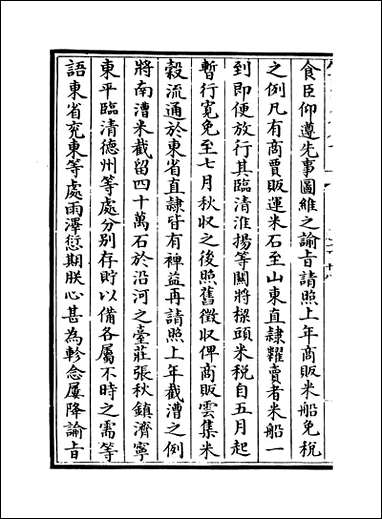 食臣仰遵先事圖維之諭㫖請照上年商販米船免税
之例凡有商賈販運米石至山東直隸糶賣者米船一
到即便放行其臨清淮揚等關將樑頭米税自五月起
暫行寛免至七月秋收之後照舊徴收俾商販雲集米
糓流通於東省直隸皆有裨益再請照上年截漕之例
將南漕米截留四十萬石於沿河之臺莊張秋鎮濟寧
東平臨清徳州等處分别存貯以備各屬不時之需等
語東省兖東等處雨澤愆期朕心甚為軫念屢降諭㫖